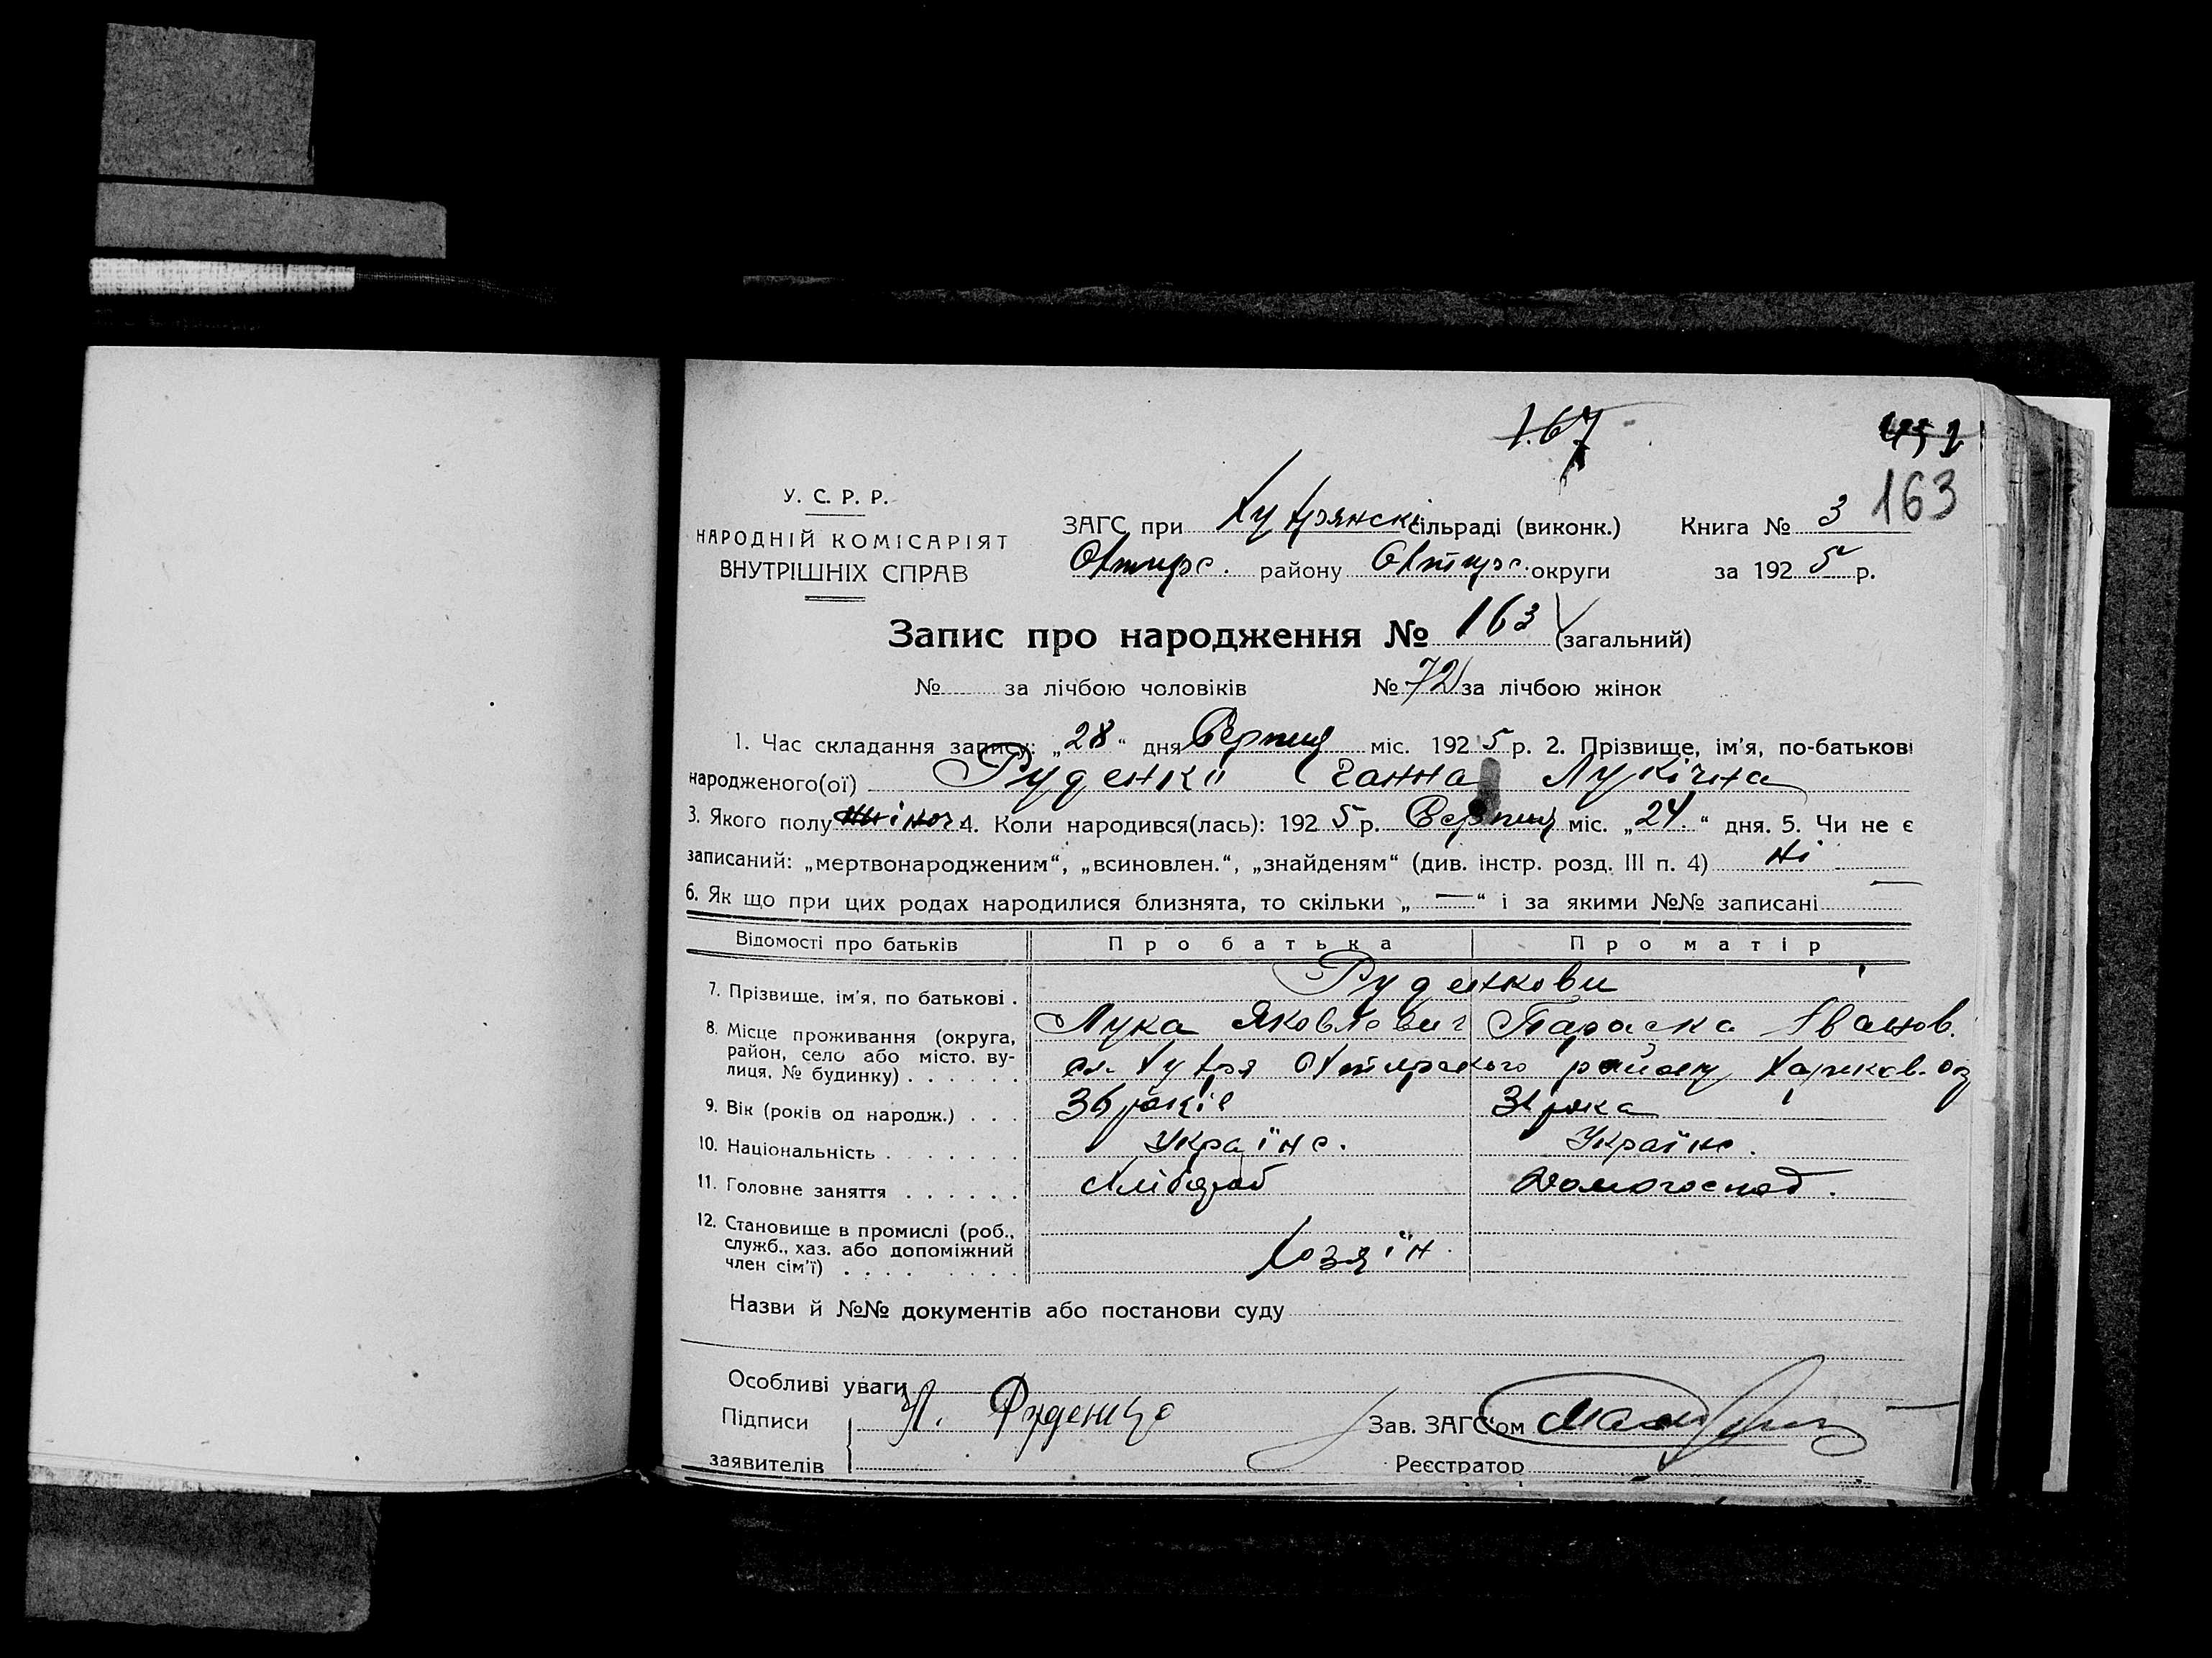 167
452
163
У. С. Р. Р.
НАРОДНІЙ КОМІСАРІЯТ
ВНУТРІШНІХ СПРАВ
ЗАГС при Хухрянскі сільраді (виконк.)
Охтирс. району Охтирс. округи
Книга № 3
за 1925 р.
Запис про народження № 163 (загальний)
№ за лічбою чоловіків № 72 за лічбою жінок
1. Час складання запису: „28“ дня Серпня міс. 1925 р. 2. Прізвище, ім'я, по-батькові
народженого(ої) Руденко Ганна Лукічна
3. Якого полу жіноч. 4. Коли народився(лась): 1925 р. Серпня міс. „24.“ дня. 5. Чи не є
записаний: „мертвонародженим“, „всиновлен.“, „знайденям“ (див. інстр. розд. III п. 4) Ні
6. Як що при цих родах народилися близнята, то скільки „—“ і за якими №№ записані —
Відомості про батьків Про батька Про матір
7. Прізвище, ім'я, по батькові . Руденкови
Лука Яковлевич Параска Іванов.
8. Місце проживання (округа, район, село або місто, вулиця, № будинку) . . . . . . сл. Хухря Охтирского району Харков. ок
9. Вік (років од народж.) . . . 36 років 31 рока
10. Національність . . . . . . . Україне. Україне.
11. Головне заняття . . . . . . Хлібороб Домогоспод.
12. Становище в промислі (роб., служб., хаз. або допоміжний член сім'ї) . . . . . . . . Хозяїн.
Назви й №№ документів або постанови суду
Особливі уваги
Підписи
заявителів
Л. Руденко
Зав. ЗАГС'ом
Реєстратор